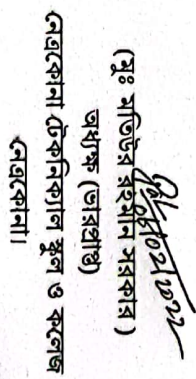 ০৪/০২/২০২২
(মুঃ মতিউর রহমান সরকার)
অধ্যক্ষ (ভারপ্রাপ্ত)
নেত্রকোনা টেকনিক্যাল স্কুল ও কলেজ
নেত্রকোনা।